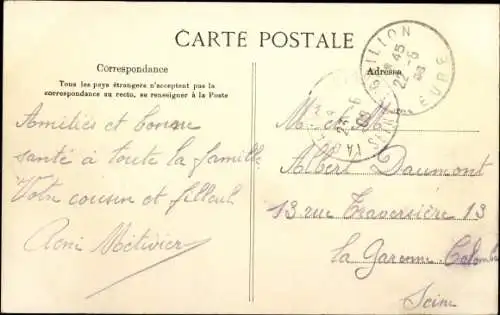 CARTE POSTALE
Correspondance
Tous les pays étrangers n'acceptent pas la
correspondance au recto, se renseigner à la Poste
Amitiés et bonne
santé à toute la famille
Votre cousin et filleul
René Métivier
Adresse
Mr & Mme
Albert Daumont
13 rue Traversière 13
la Garenne Colombes
Seine
22 -6
08
EURE